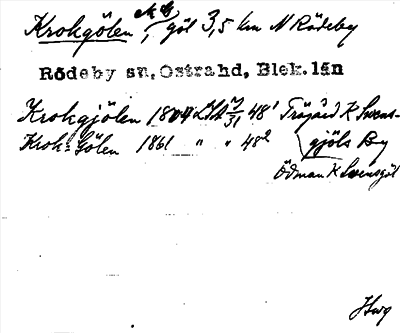 Krokgölen, göl 3,5 km N Rödeby
Rödeby sn, Östra hd, Blek. län
Krokgjölen 1804 31 48¹ Trägård K Svens-
Krok- Gölen 1861 " " 48² gjöls By
Ödman K Svensgöl